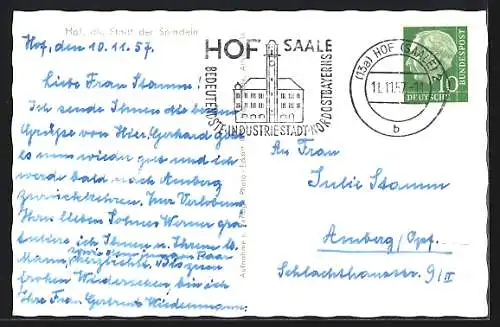 Hof, die Stadt der Spindeln
Hof, den 10.11.57.
Liebe Frau Stamm!
Ich sende Ihnen die besten
Grüße von Hier. Gerhard geht
es nun wieder gut und ich
werde bald nach Amberg
zurückkehren. Zur Verlobung
Ihres lieben Sohnes Werner gra-
tuliere ich Ihnen u. Ihrem lb.
sowie dem jungen Paar
Mann, herzlichst. Bis zum
frohen Wiedersehen, bin ich
Ihre Frau Gertrud Wiedenmann.
HOF SAALE
BEDEUTENDSTE INDUSTRIESTADT NORDOSTBAYERNS
(13a) HOF (SAALE) 2
11.11.57
b
10
DEUTSCHE BUNDESPOST
An Frau
Julie Stamm
Amberg/Opf.
Schlachthausstr. 9/II